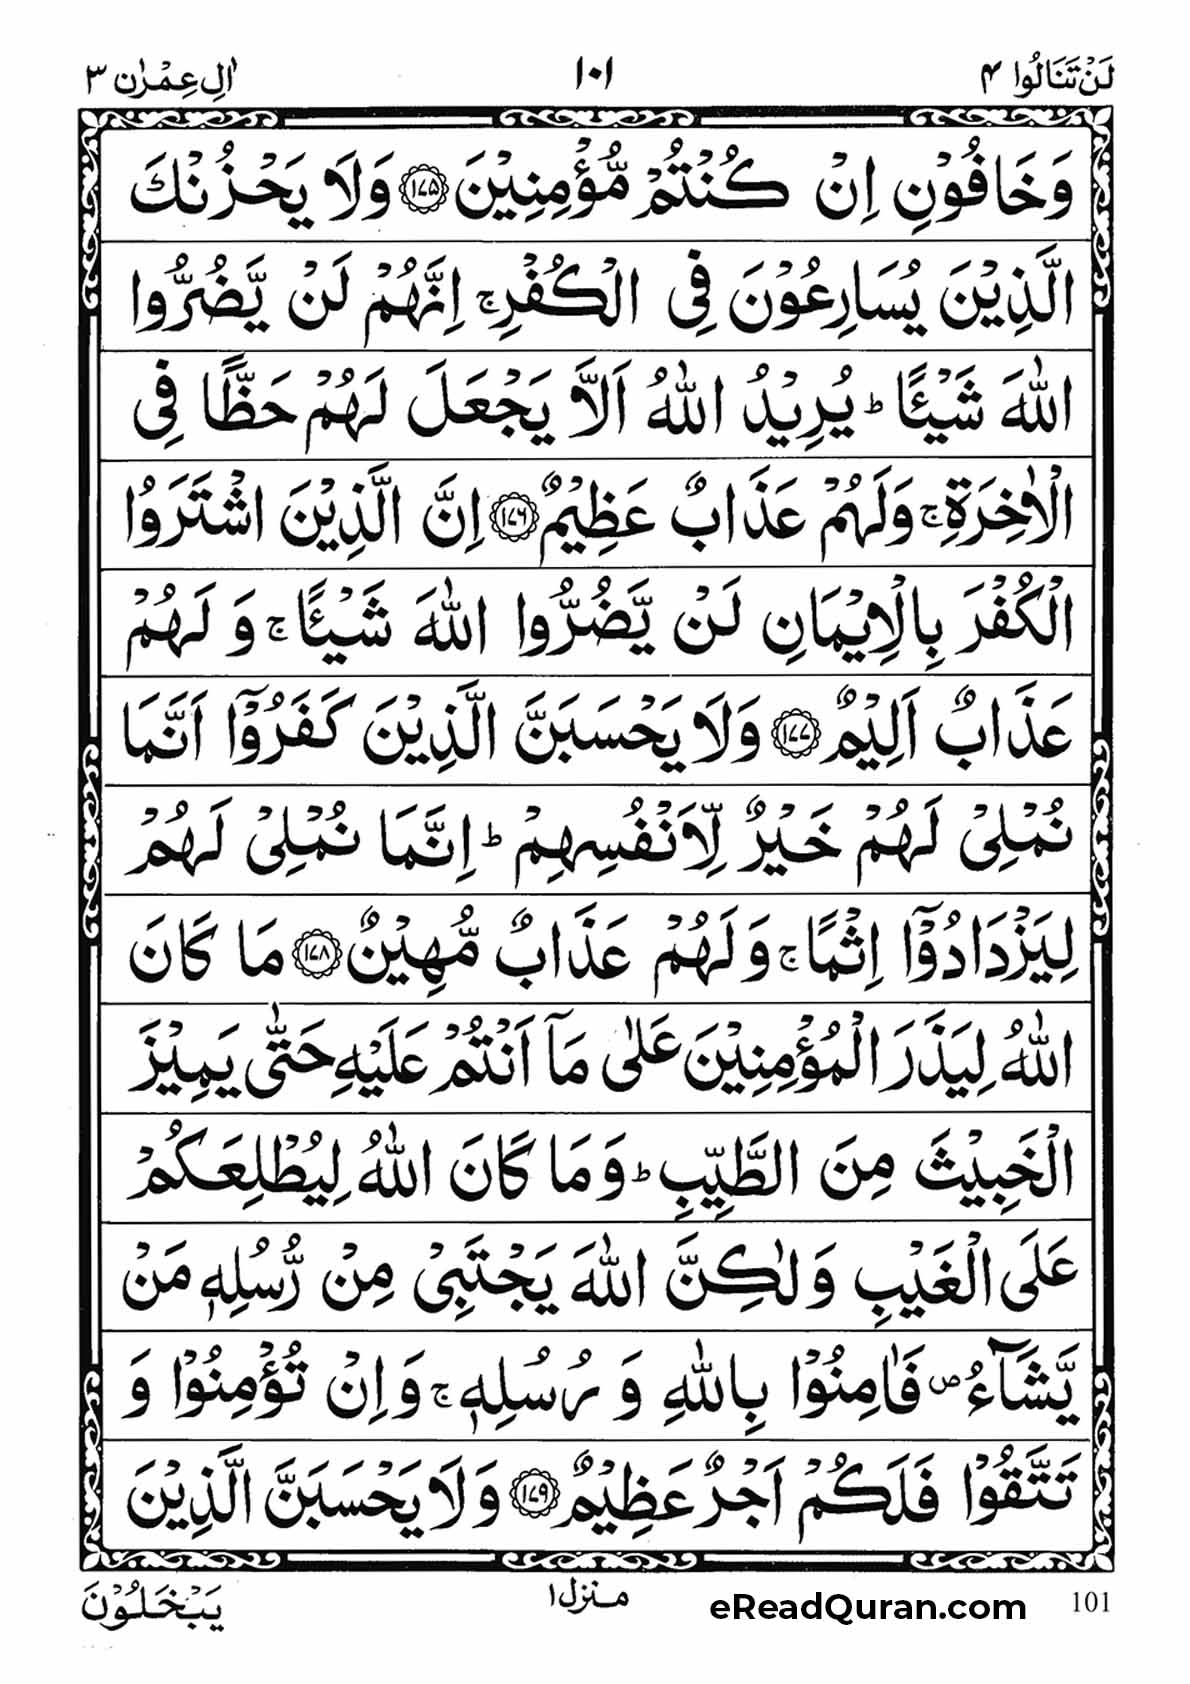 لَنْ تَنَالُوا ٤ ١٠١ اٰلِ عِمْرٰن ٣
وَخَافُوْنِ اِنْ كُنْتُمْ مُّؤْمِنِيْنَ ﴿١٧٥﴾ وَلَا يَحْزُنْكَ
الَّذِيْنَ يُسَارِعُوْنَ فِى الْكُفْرِ ۚ اِنَّهُمْ لَنْ يَّضُرُّوا
اللّٰهَ شَيْـًٔا ؕ يُرِيْدُ اللّٰهُ اَلَّا يَجْعَلَ لَهُمْ حَظًّا فِى
الْاٰخِرَةِ ۚ وَلَهُمْ عَذَابٌ عَظِيْمٌ ﴿١٧٦﴾ اِنَّ الَّذِيْنَ اشْتَرَوُا
الْكُفْرَ بِالْاِيْمَانِ لَنْ يَّضُرُّوا اللّٰهَ شَيْـًٔا ۚ وَ لَهُمْ
عَذَابٌ اَلِيْمٌ ﴿١٧٧﴾ وَلَا يَحْسَبَنَّ الَّذِيْنَ كَفَرُوْۤا اَنَّمَا
نُمْلِىْ لَهُمْ خَيْرٌ لِّاَنْفُسِهِمْ ؕ اِنَّمَا نُمْلِىْ لَهُمْ
لِيَزْدَادُوْۤا اِثْمًا ۚ وَلَهُمْ عَذَابٌ مُّهِيْنٌ ﴿١٧٨﴾ مَا كَانَ
اللّٰهُ لِيَذَرَ الْمُؤْمِنِيْنَ عَلٰى مَاۤ اَنْتُمْ عَلَيْهِ حَتّٰى يَمِيْزَ
الْخَبِيْثَ مِنَ الطَّيِّبِ ؕ وَمَا كَانَ اللّٰهُ لِيُطْلِعَكُمْ
عَلَى الْغَيْبِ وَلٰكِنَّ اللّٰهَ يَجْتَبِىْ مِنْ رُّسُلِهٖ مَنْ
يَّشَآءُ ص فَاٰمِنُوْا بِاللّٰهِ وَ رُسُلِهٖ ۚ وَاِنْ تُؤْمِنُوْا وَ
تَتَّقُوْا فَلَكُمْ اَجْرٌ عَظِيْمٌ ﴿١٧٩﴾ وَلَا يَحْسَبَنَّ الَّذِيْنَ
يَبْخَلُوْنَ منزل ١ eReadQuran.com 101